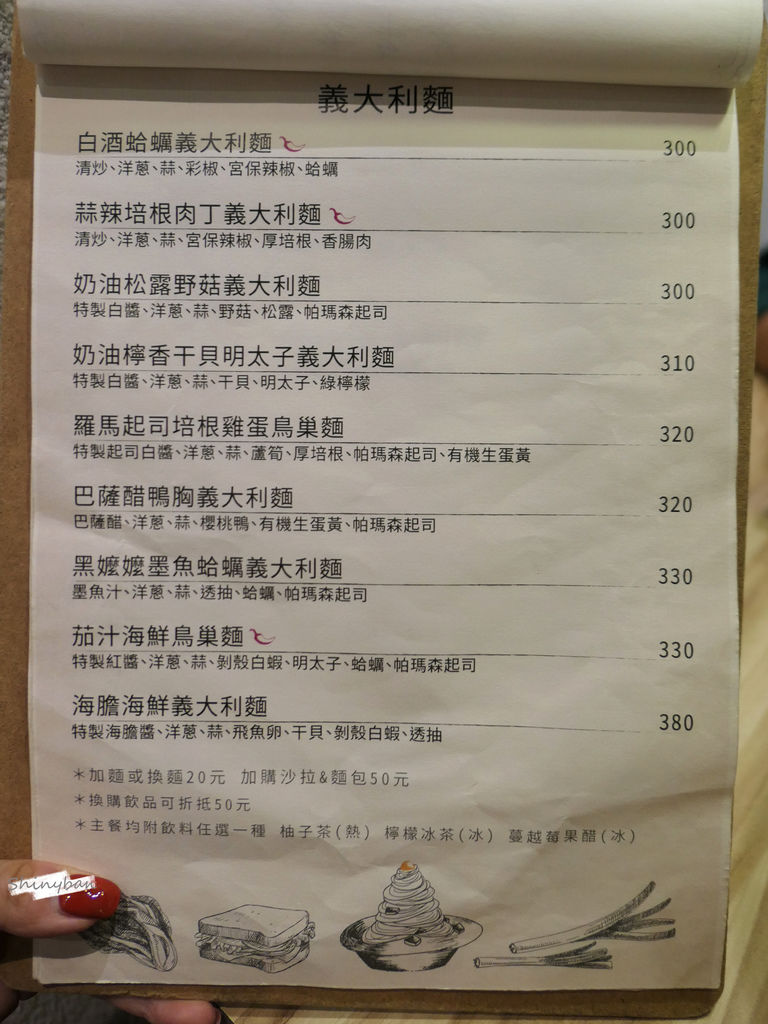 義大利麵
白酒蛤蠣義大利麵 300
清炒、洋蔥、蒜、彩椒、宮保辣椒、蛤蠣
蒜辣培根肉丁義大利麵 300
清炒、洋蔥、蒜、宮保辣椒、厚培根、香腸肉
奶油松露野菇義大利麵 300
特製白醬、洋蔥、蒜、野菇、松露、帕瑪森起司
奶油檸香干貝明太子義大利麵 310
特製白醬、洋蔥、蒜、干貝、明太子、綠檸檬
羅馬起司培根雞蛋鳥巢麵 320
特製起司白醬、洋蔥、蒜、蘆筍、厚培根、帕瑪森起司、有機生蛋黃
巴薩醋鴨胸義大利麵 320
巴薩醋、洋蔥、蒜、櫻桃鴨、有機生蛋黃、帕瑪森起司
黑嬤嬤墨魚蛤蠣義大利麵 330
墨魚汁、洋蔥、蒜、透抽、蛤蠣、帕瑪森起司
茄汁海鮮鳥巢麵 330
特製紅醬、洋蔥、蒜、剝殼白蝦、明太子、蛤蠣、帕瑪森起司
海膽海鮮義大利麵 380
特製海膽醬、洋蔥、蒜、飛魚卵、干貝、剝殼白蝦、透抽
＊加麵或換麵20元 加購沙拉&麵包50元
＊換購飲品可折抵50元
＊主餐均附飲料任選一種 柚子茶(熱) 檸檬冰茶(冰) 蔓越莓果醋(冰)
shinyban